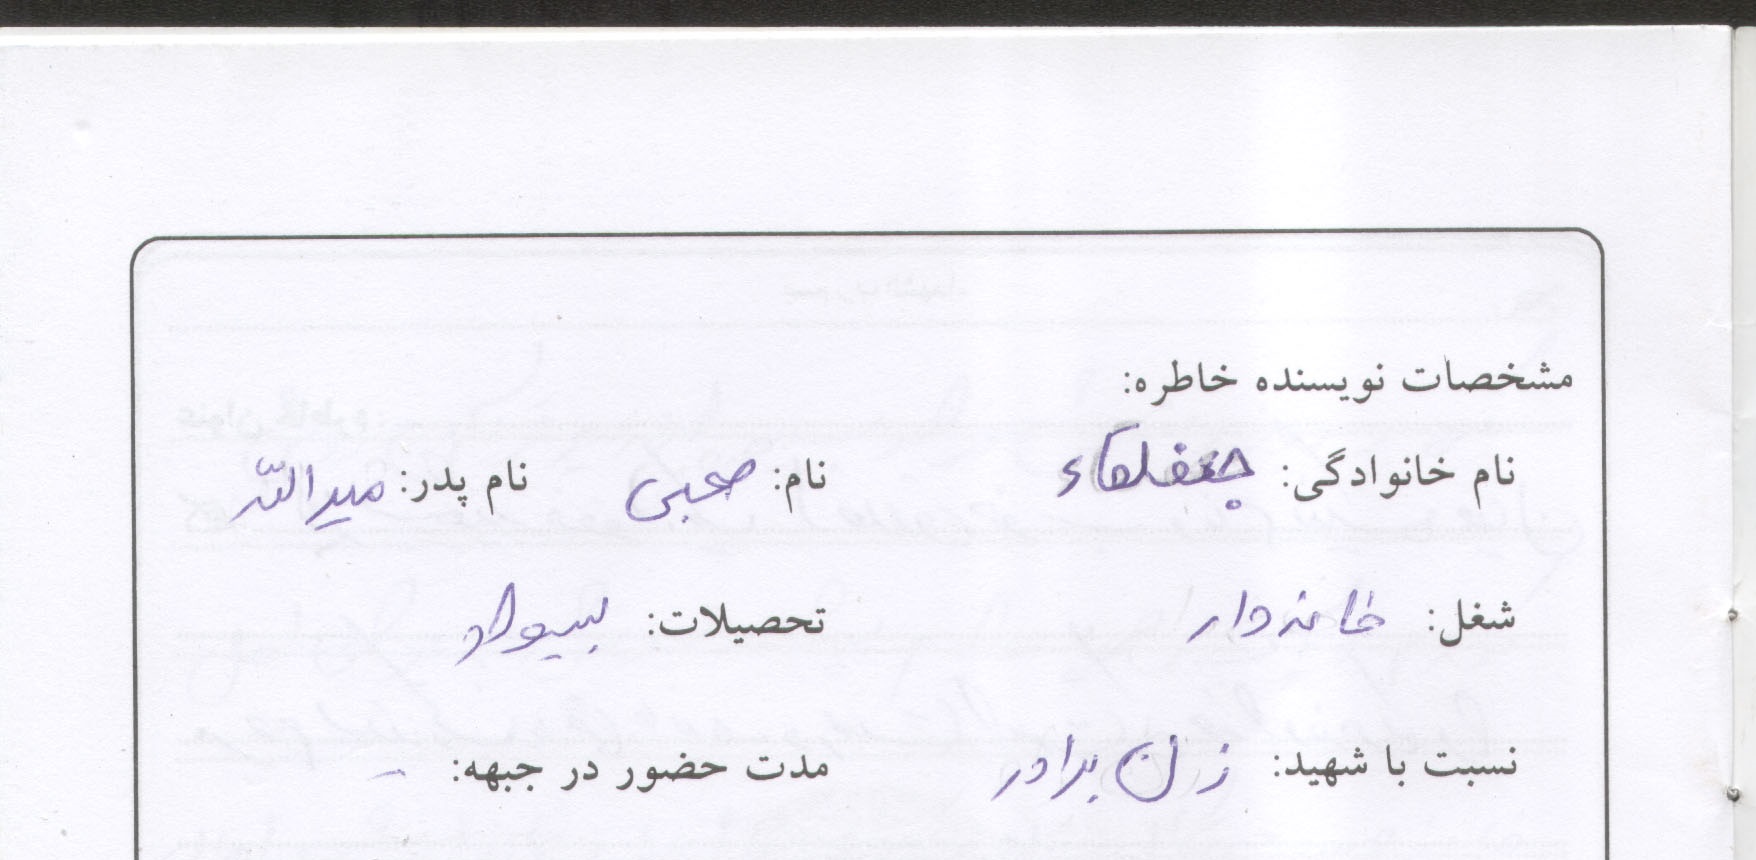 مشخصات نویسنده خاطره:
نام خانوادگی: نام: نام پدر:
شغل: خانه دار تحصیلات: بیسواد
نسبت با شهید: زن برادر مدت حضور در جبهه: –